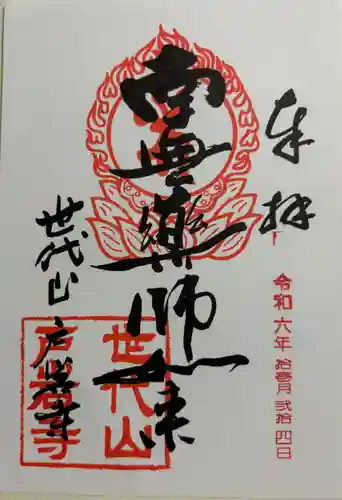 奉拝
令和六年 拾壹月 弐拾四日
南無薬師如来
世代山 戸岩寺
世代山
戸岩寺